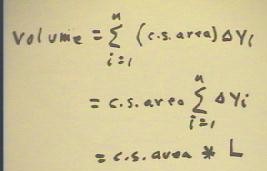 volume = n∑i=1 (c.s. area) ΔYi
= c.s. area n∑i=1 ΔYi
= c.s. area * L